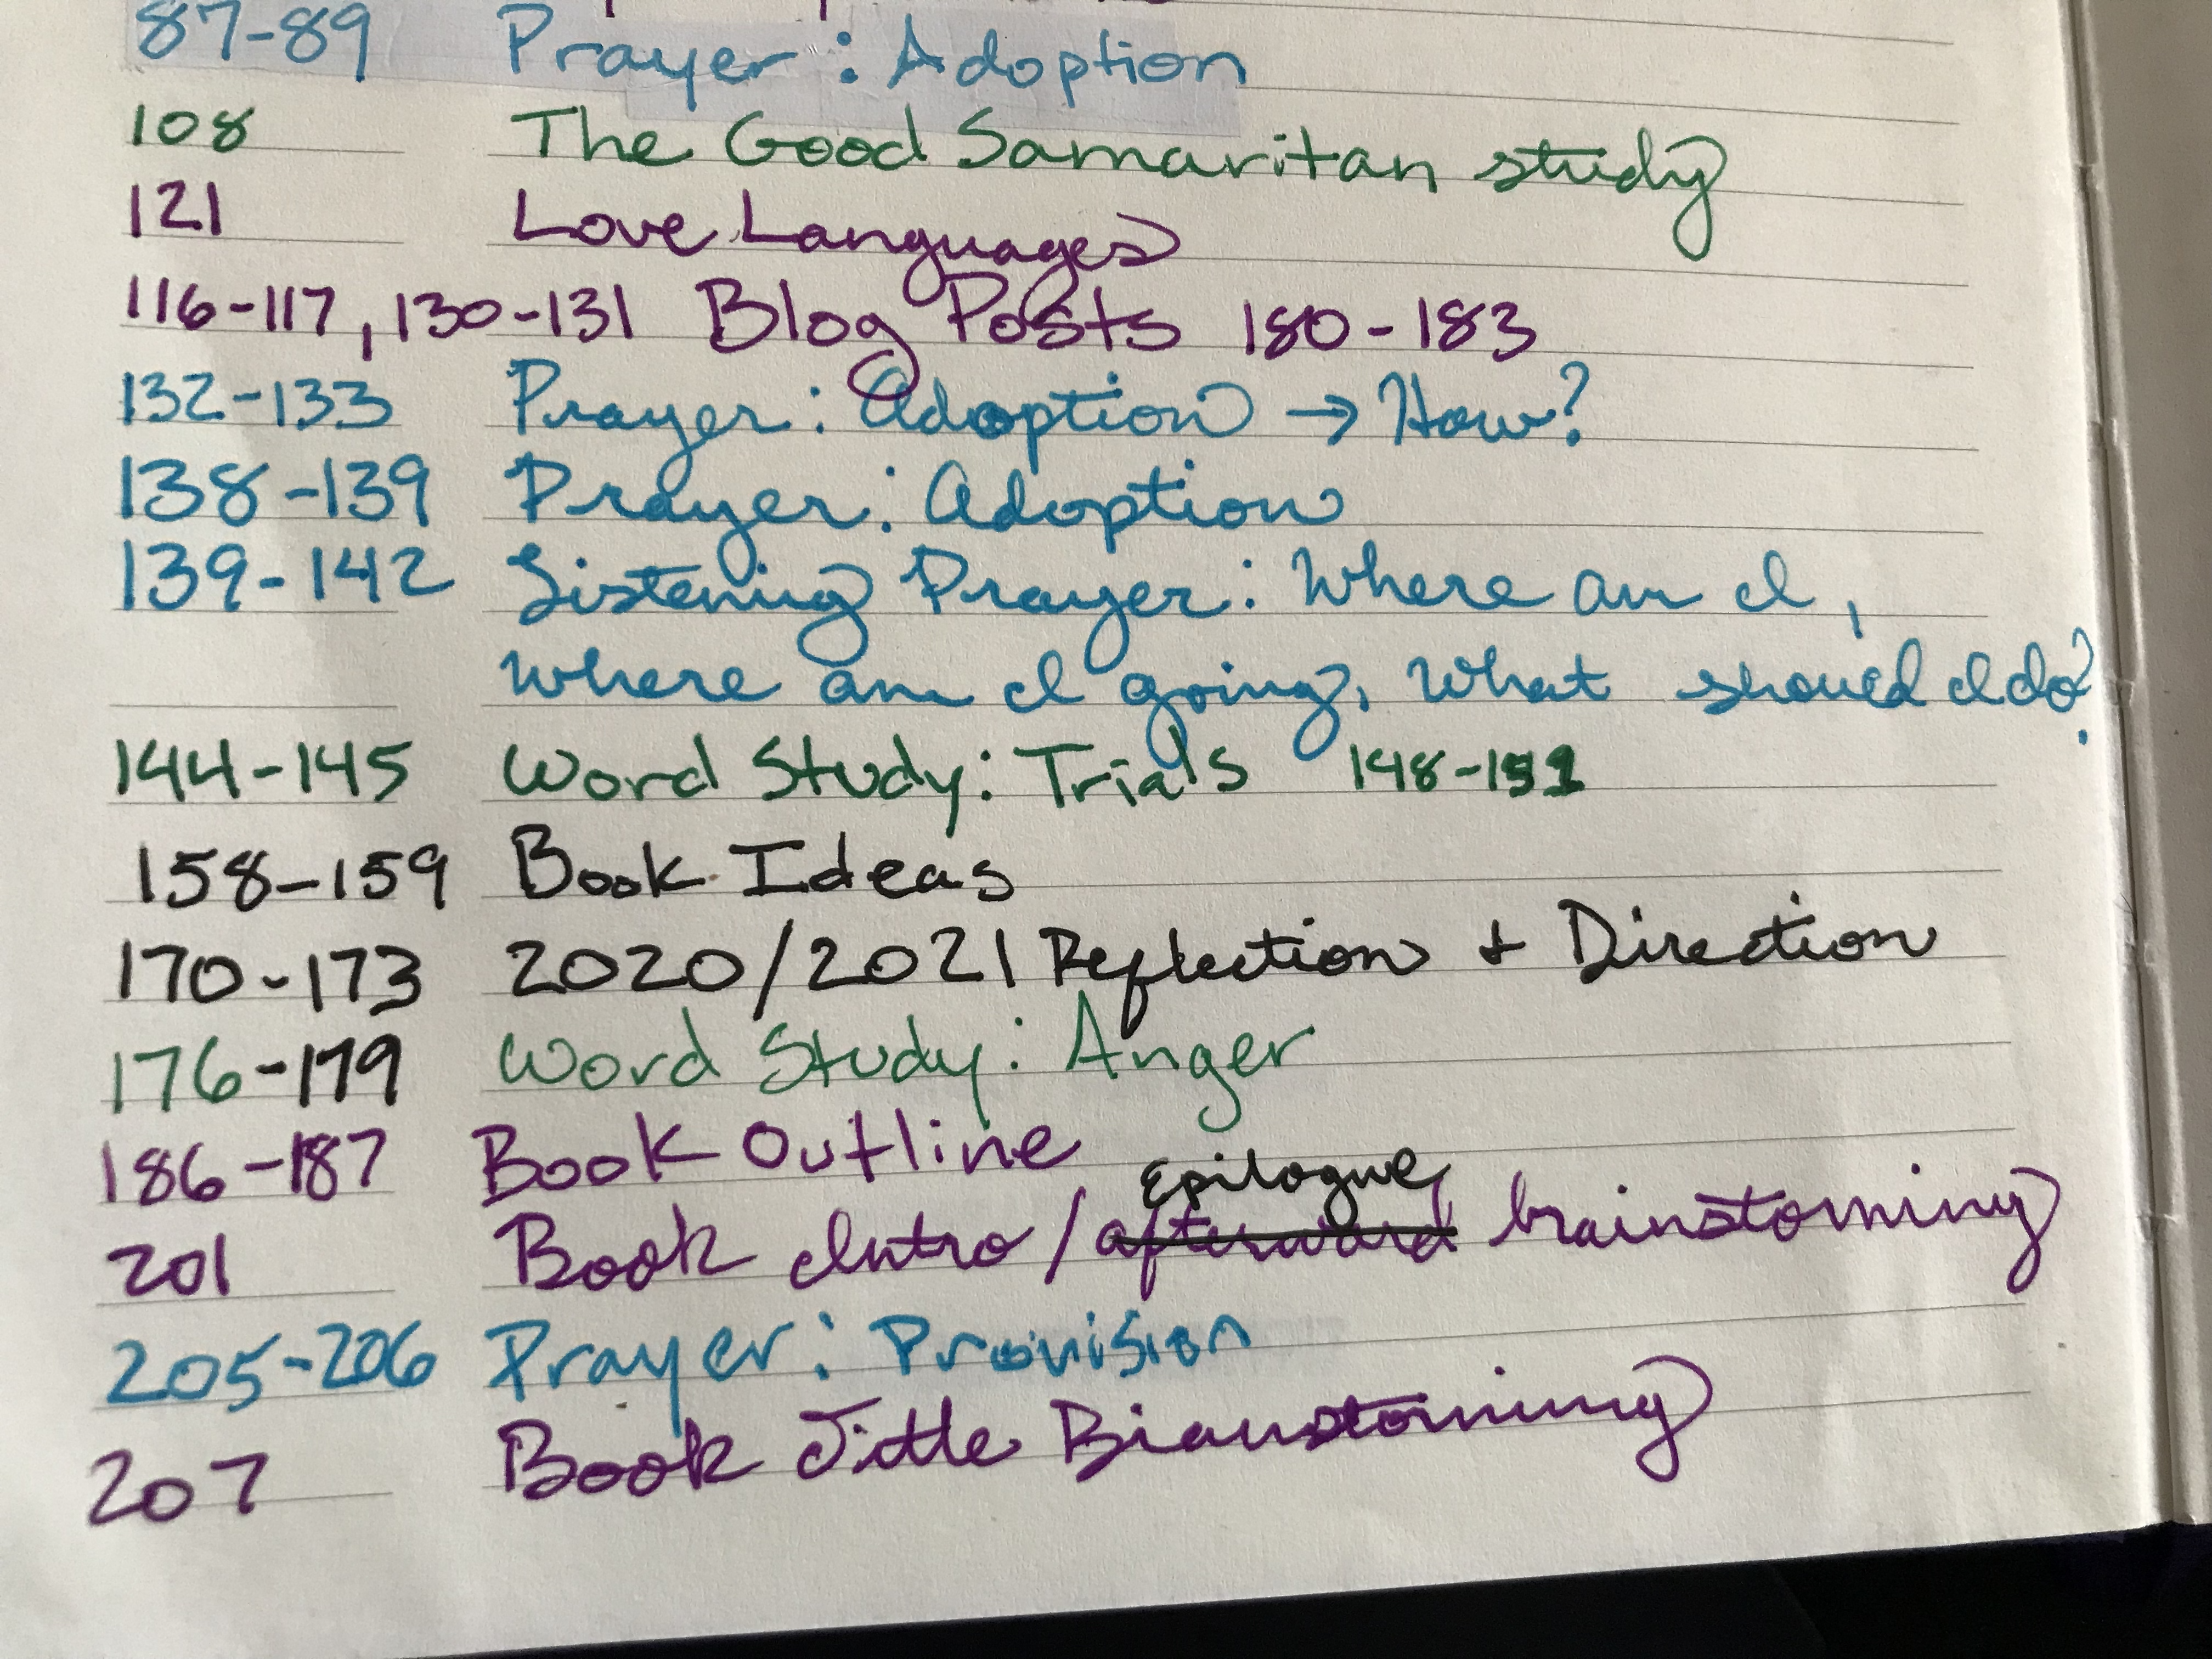 87-89 Prayer: Adoption
108 The Good Samaritan study
121 Love Languages
116-117, 130-131 Blog Posts 180-183
132-133 Prayer: Adoption → How?
138-139 Prayer: Adoption
139-142 Listening Prayer: Where am I,
where am I going, What should I do?
144-145 Word Study: Trials 148-151
158-159 Book Ideas
170-173 2020/2021 Reflection + Direction
176-179 Word Study: Anger
186-187 Book Outline
Epilogue
201 Book Intro/afterward brainstorming
205-206 Prayer: Provision
207 Book Title Brianstorming